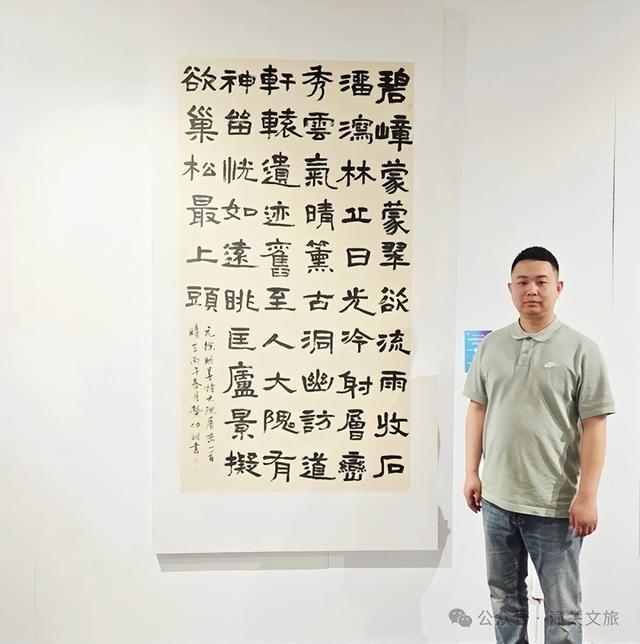 碧嶂蒙蒙翠欲流雨收石
溜瀉林丘日光冷射層巒
秀雲氣晴薰古洞幽訪道
軒轅遺迹舊至人大隗有
神留恍如遠眺匡廬景擬
欲巢松最上頭
元徐明善詩大隗一首
丙午春月書
公众号·濮美文旅